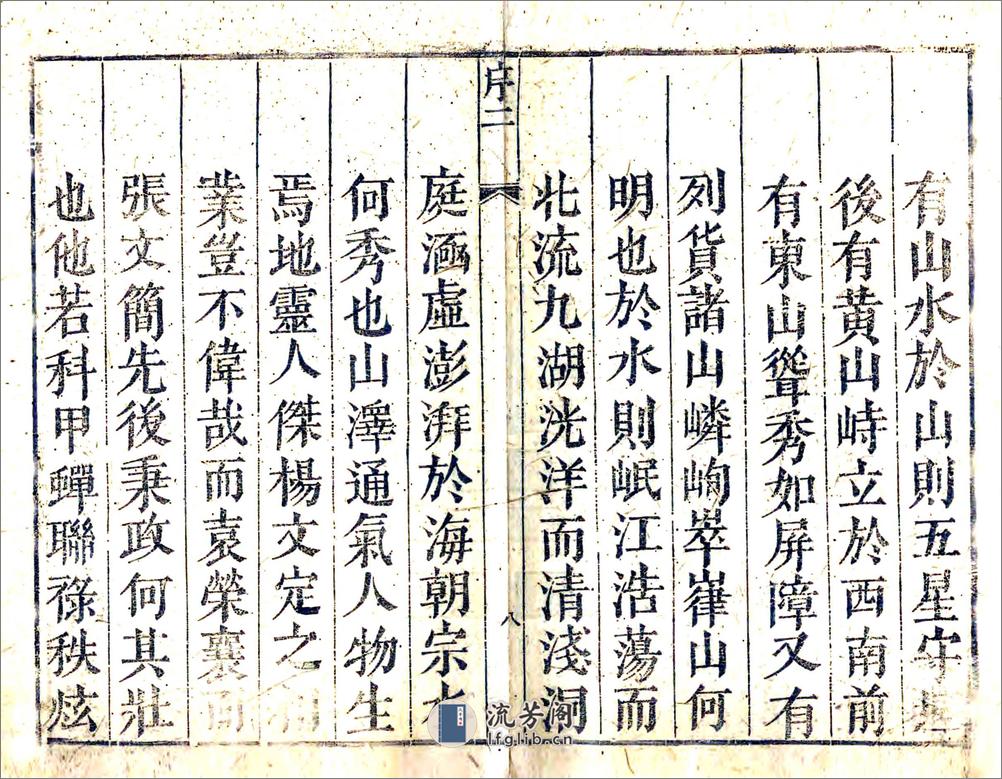 有山水於山則五星守
後有黄山峙立於西南前
有東山聳秀如屏障又有
列貨諸山嶙峋崒嵂山何
明也於水則岷江浩蕩而
北流九湖洸洋而清淺洞
序二
八
庭涵虛澎湃於海朝宗
何秀也山澤通氣人物生
焉地靈人傑楊文定之
業豈不偉哉而袁榮襄
張文簡先後秉政何其壯
也他若科甲蟬聯祿秩炫
流芳阁
lfglib.cn